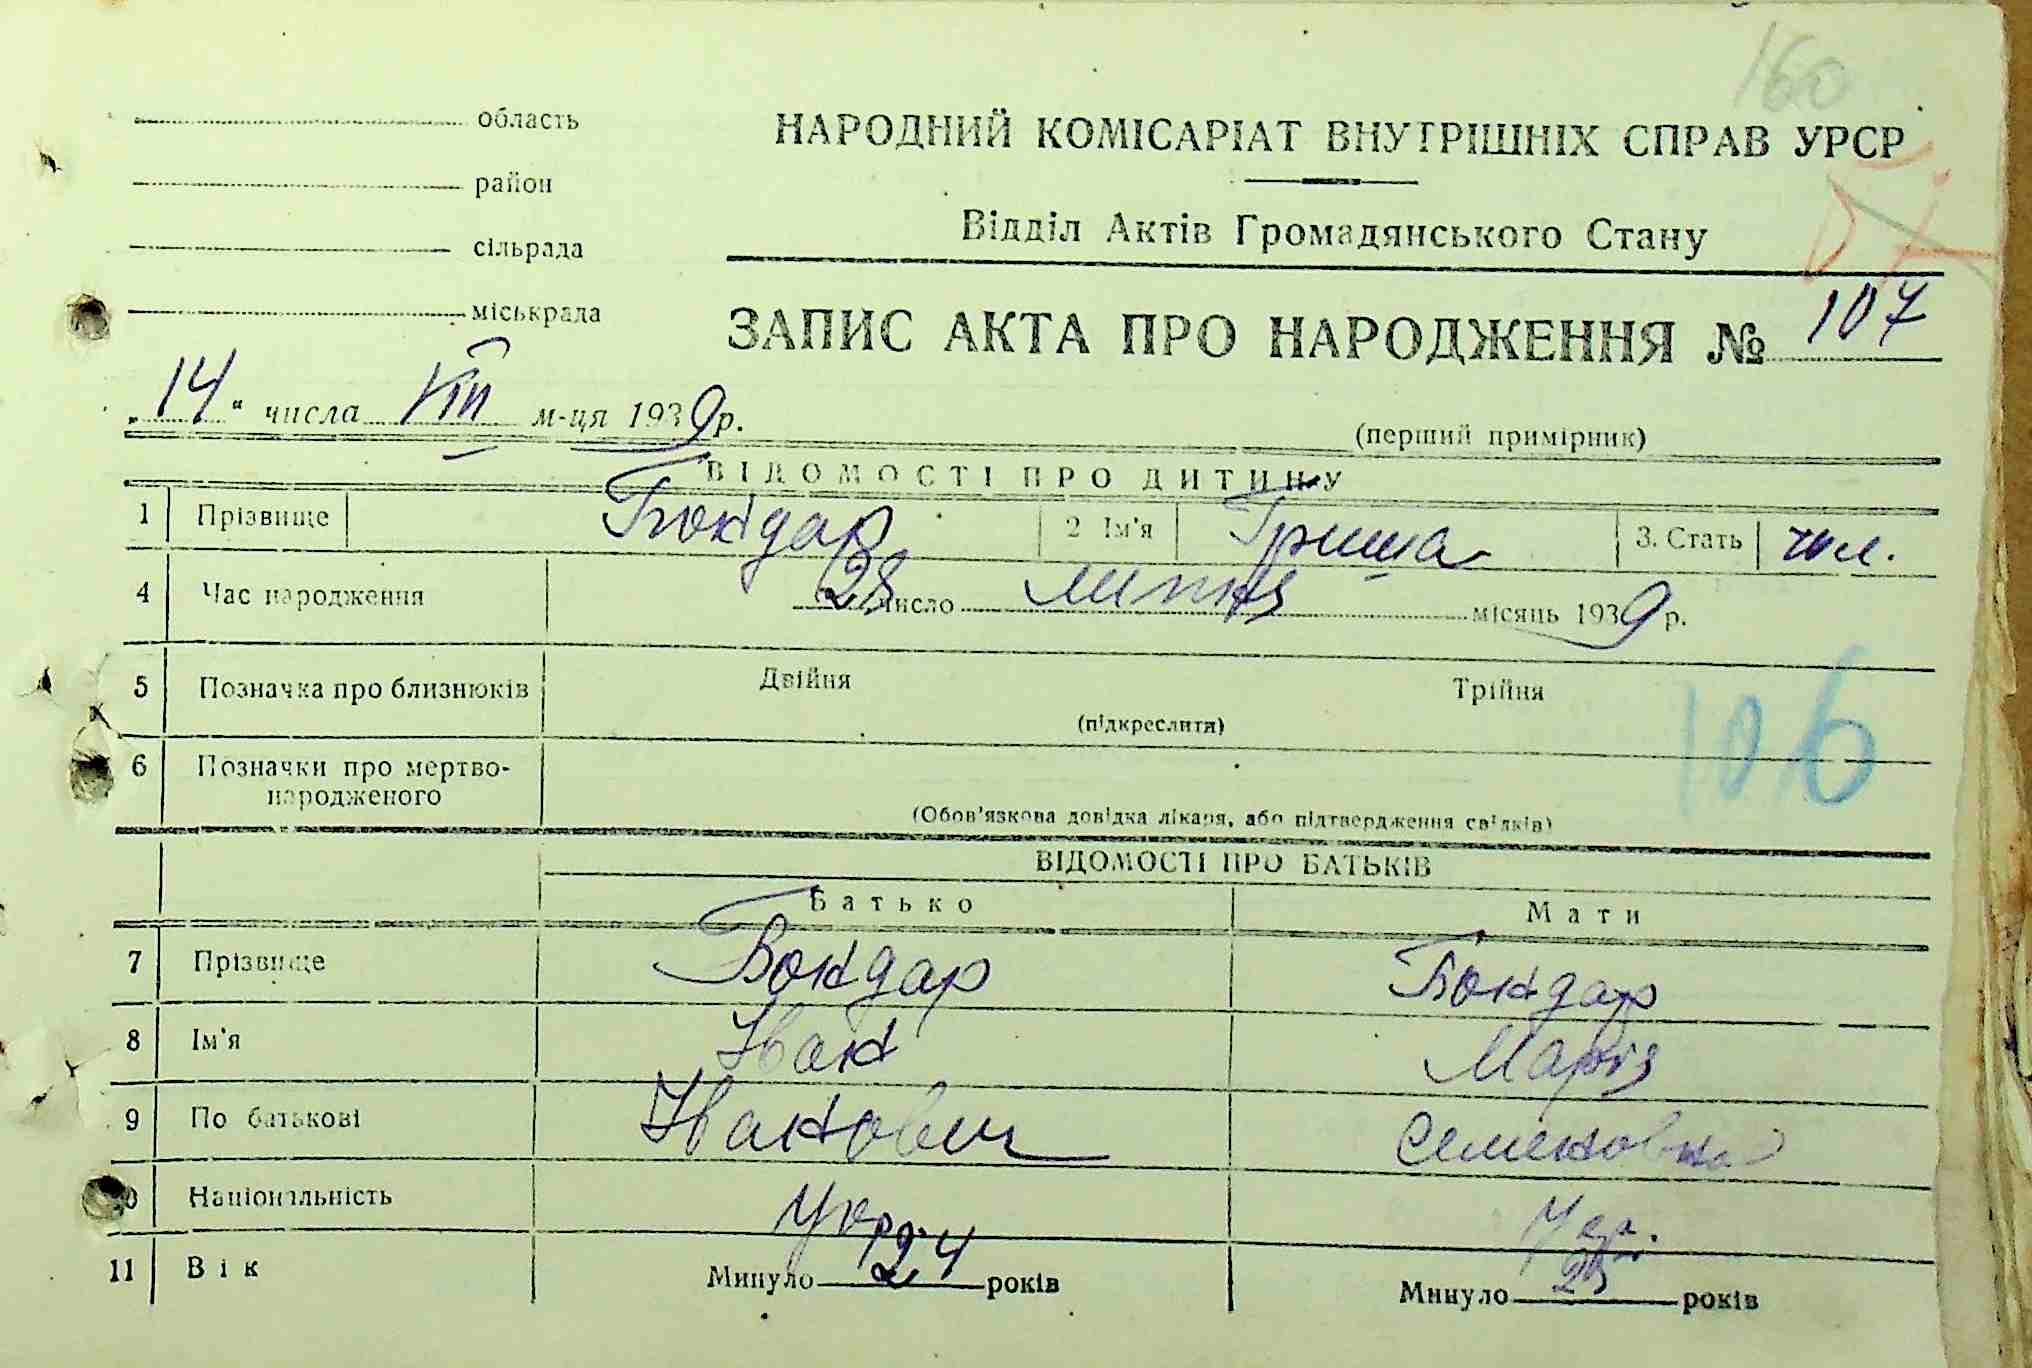 160
область
НАРОДНИЙ КОМІСАРІАТ ВНУТРІШНІХ СПРАВ УРСР
район
Відділ Актів Громадянського Стану
сільрада
міськрада
ЗАПИС АКТА ПРО НАРОДЖЕННЯ № 107
„14“ числа VIII м-ця 1939 р.
(перший примірник)
ВІДОМОСТІ ПРО ДИТИНУ
1 Прізвище Бондар 2 Ім'я Гриша 3. Стать чол.
4 Час народження 28 число липня місяць 1939 р.
5 Позначка про близнюків Двійня Трійня
(підкреслити)
106
6 Позначки про мертво-
народженого
(Обов'язкова довідка лікаря, або підтвердження свідків)
ВІДОМОСТІ ПРО БАТЬКІВ
Батько Мати
7 Прізвище Бондар Бондар
8 Ім'я Іван Марія
9 По батькові Іванович Семеновна
Національність Укр. Укр.
11 Вік Минуло 24 років Минуло років